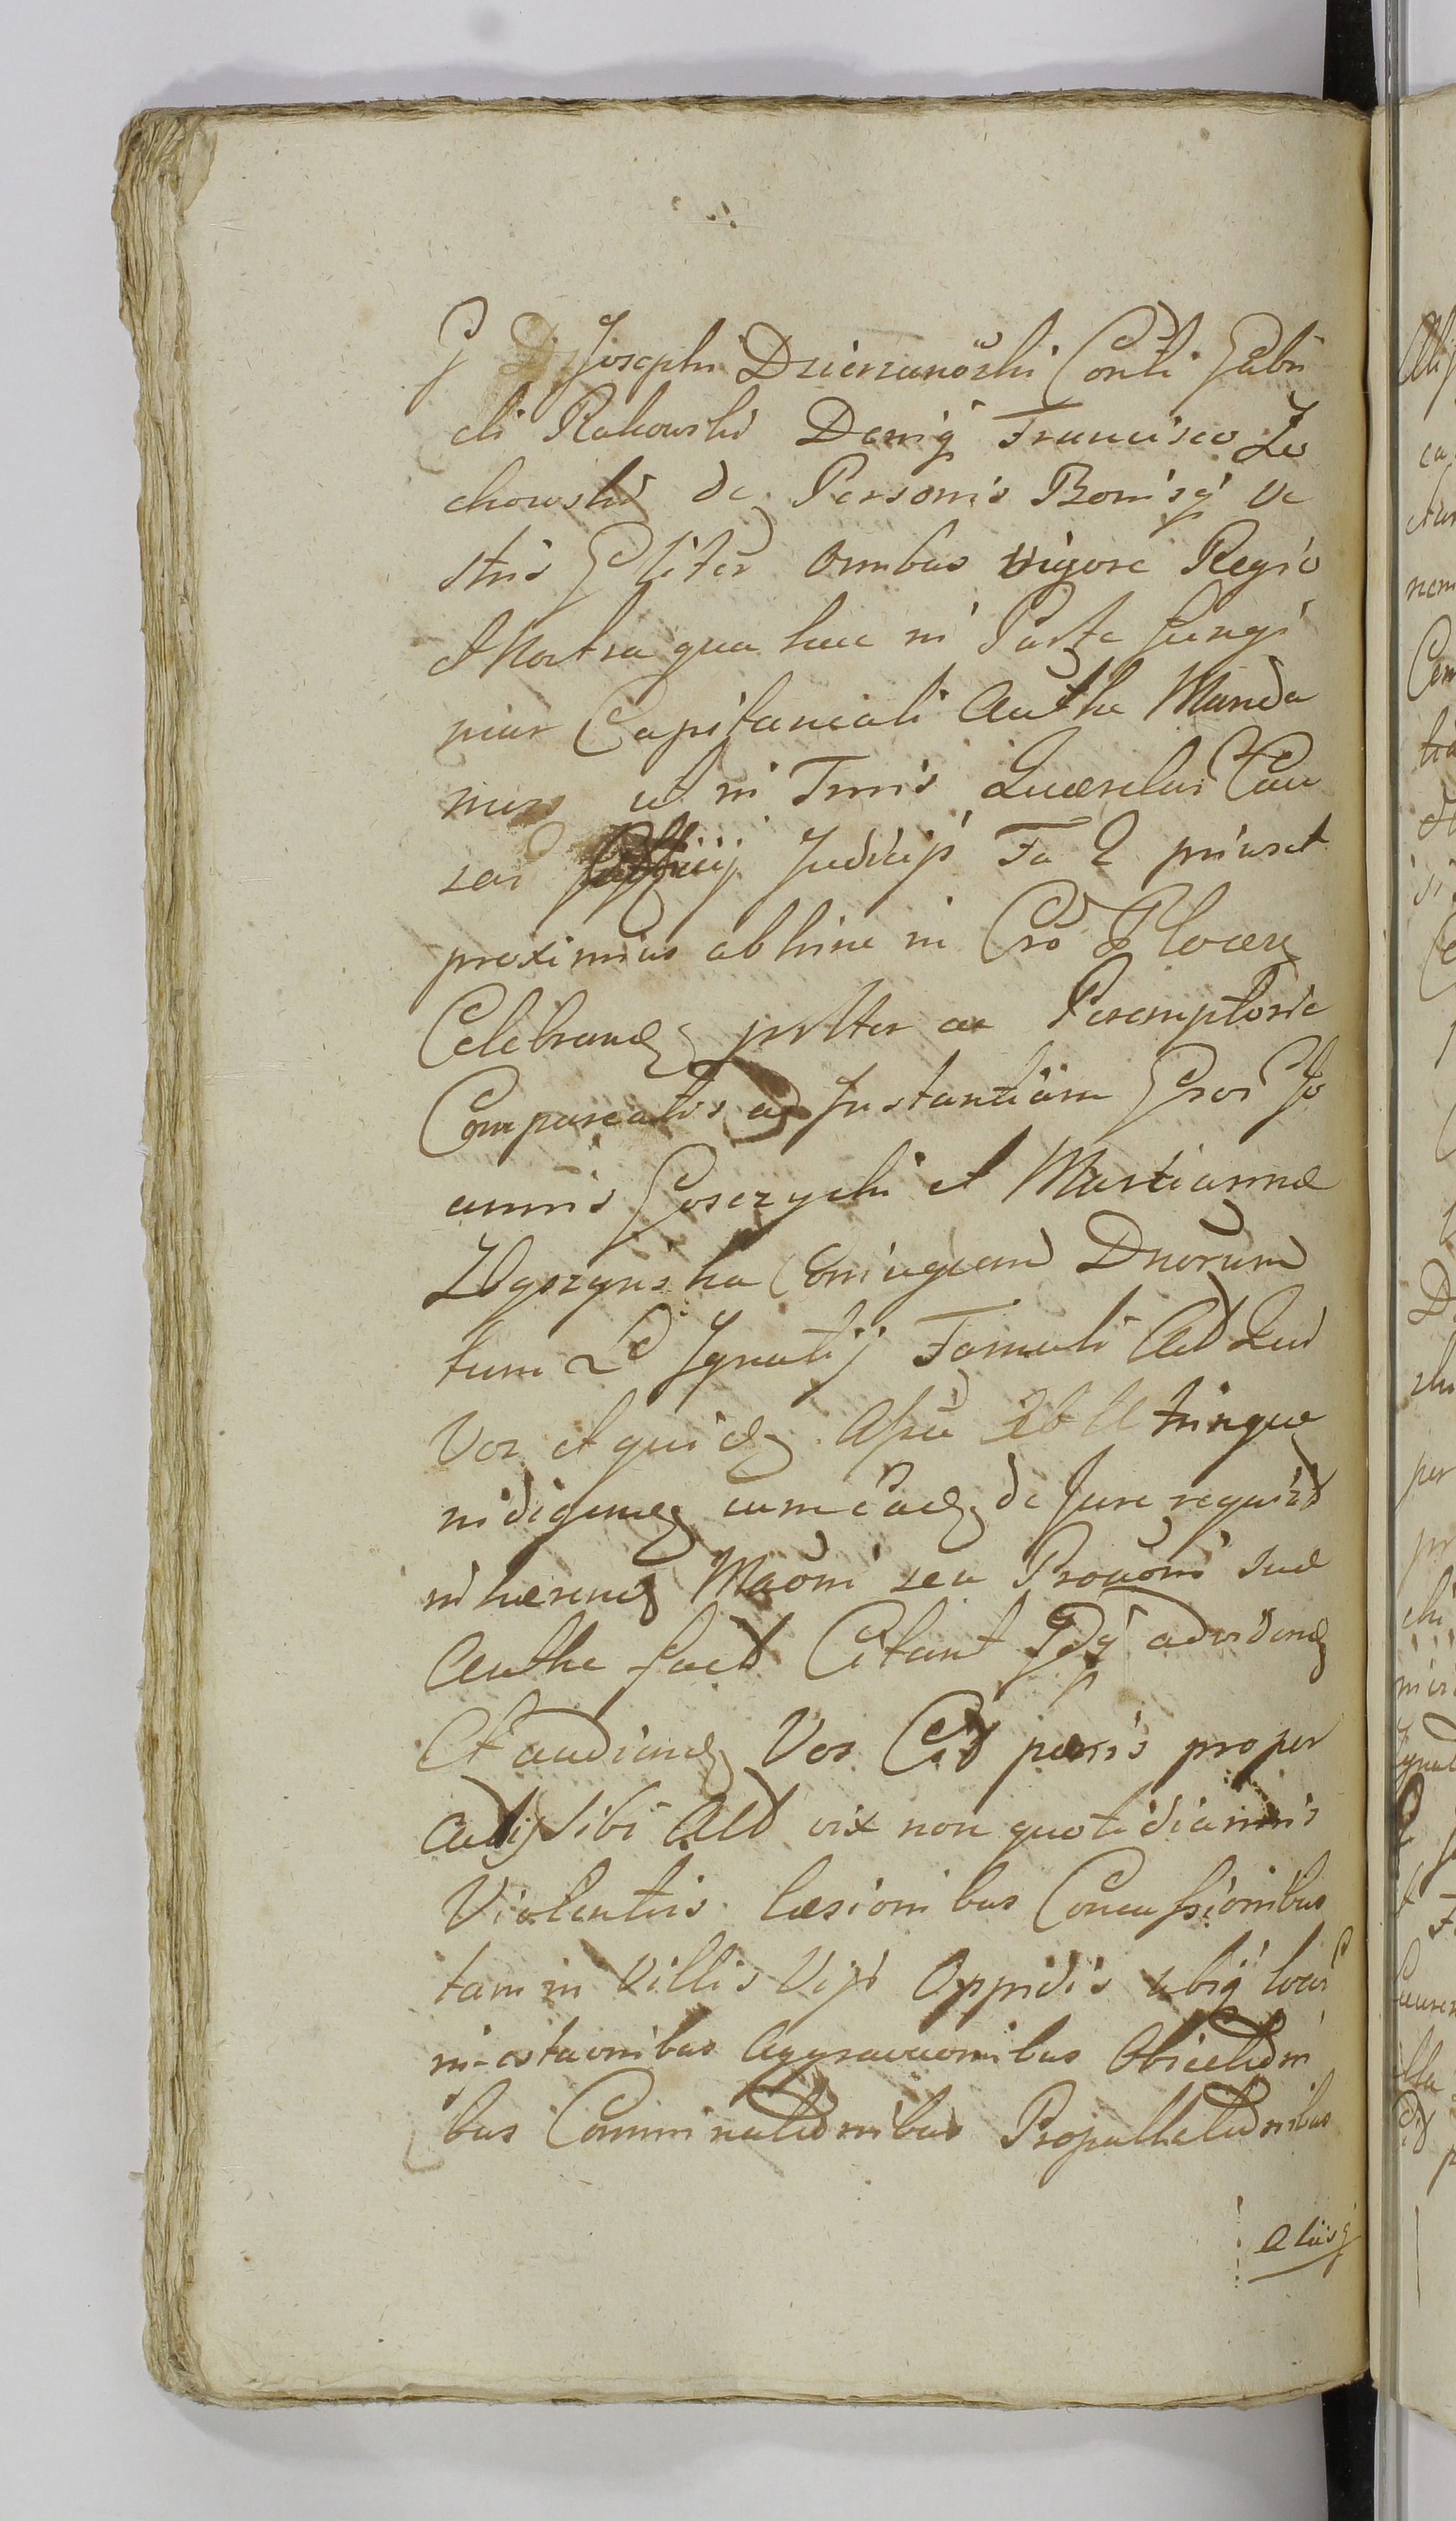 G D Josephi Dzierzanoski Conti Gabri
eli Rakowski Deniq Francisco Zo
chowski de Personis Bonisq ve
stris Gliter omnibus vigore Regio
et Nostra qua hac in Parte fungi
mur Capitaneali Autthe Manda
mus ut in Tmis Querelar Cau
sar Judicij Fa 2 priusat
proximius abhinc in Cro Plocen
Celebrand pnlter ac Peremptorie
Compareatis ad Instantiam Gror Jo
annis Goszycki et Martianna
Zdgozynska Coniugum Dnorum
tum Ld Ignatij Famuli Act Qui
Vos et quid Aſſtia ab Utrinque
indigend eum eade de Jure requisit
inhærend Maoni seu Provoni suæ
Autthe fact Citant Idq ad vidend
Et audiend Vos Cit pænis proper
catis sibi Act vix non quotidiannis
Violentiis læsionibus Concussionibus
tam in Villis Vijs Oppidis ubiq locor
in-estaonibus Aggravaonibus Obiectioni
bus Comminationibus Propallationibus
aliisq